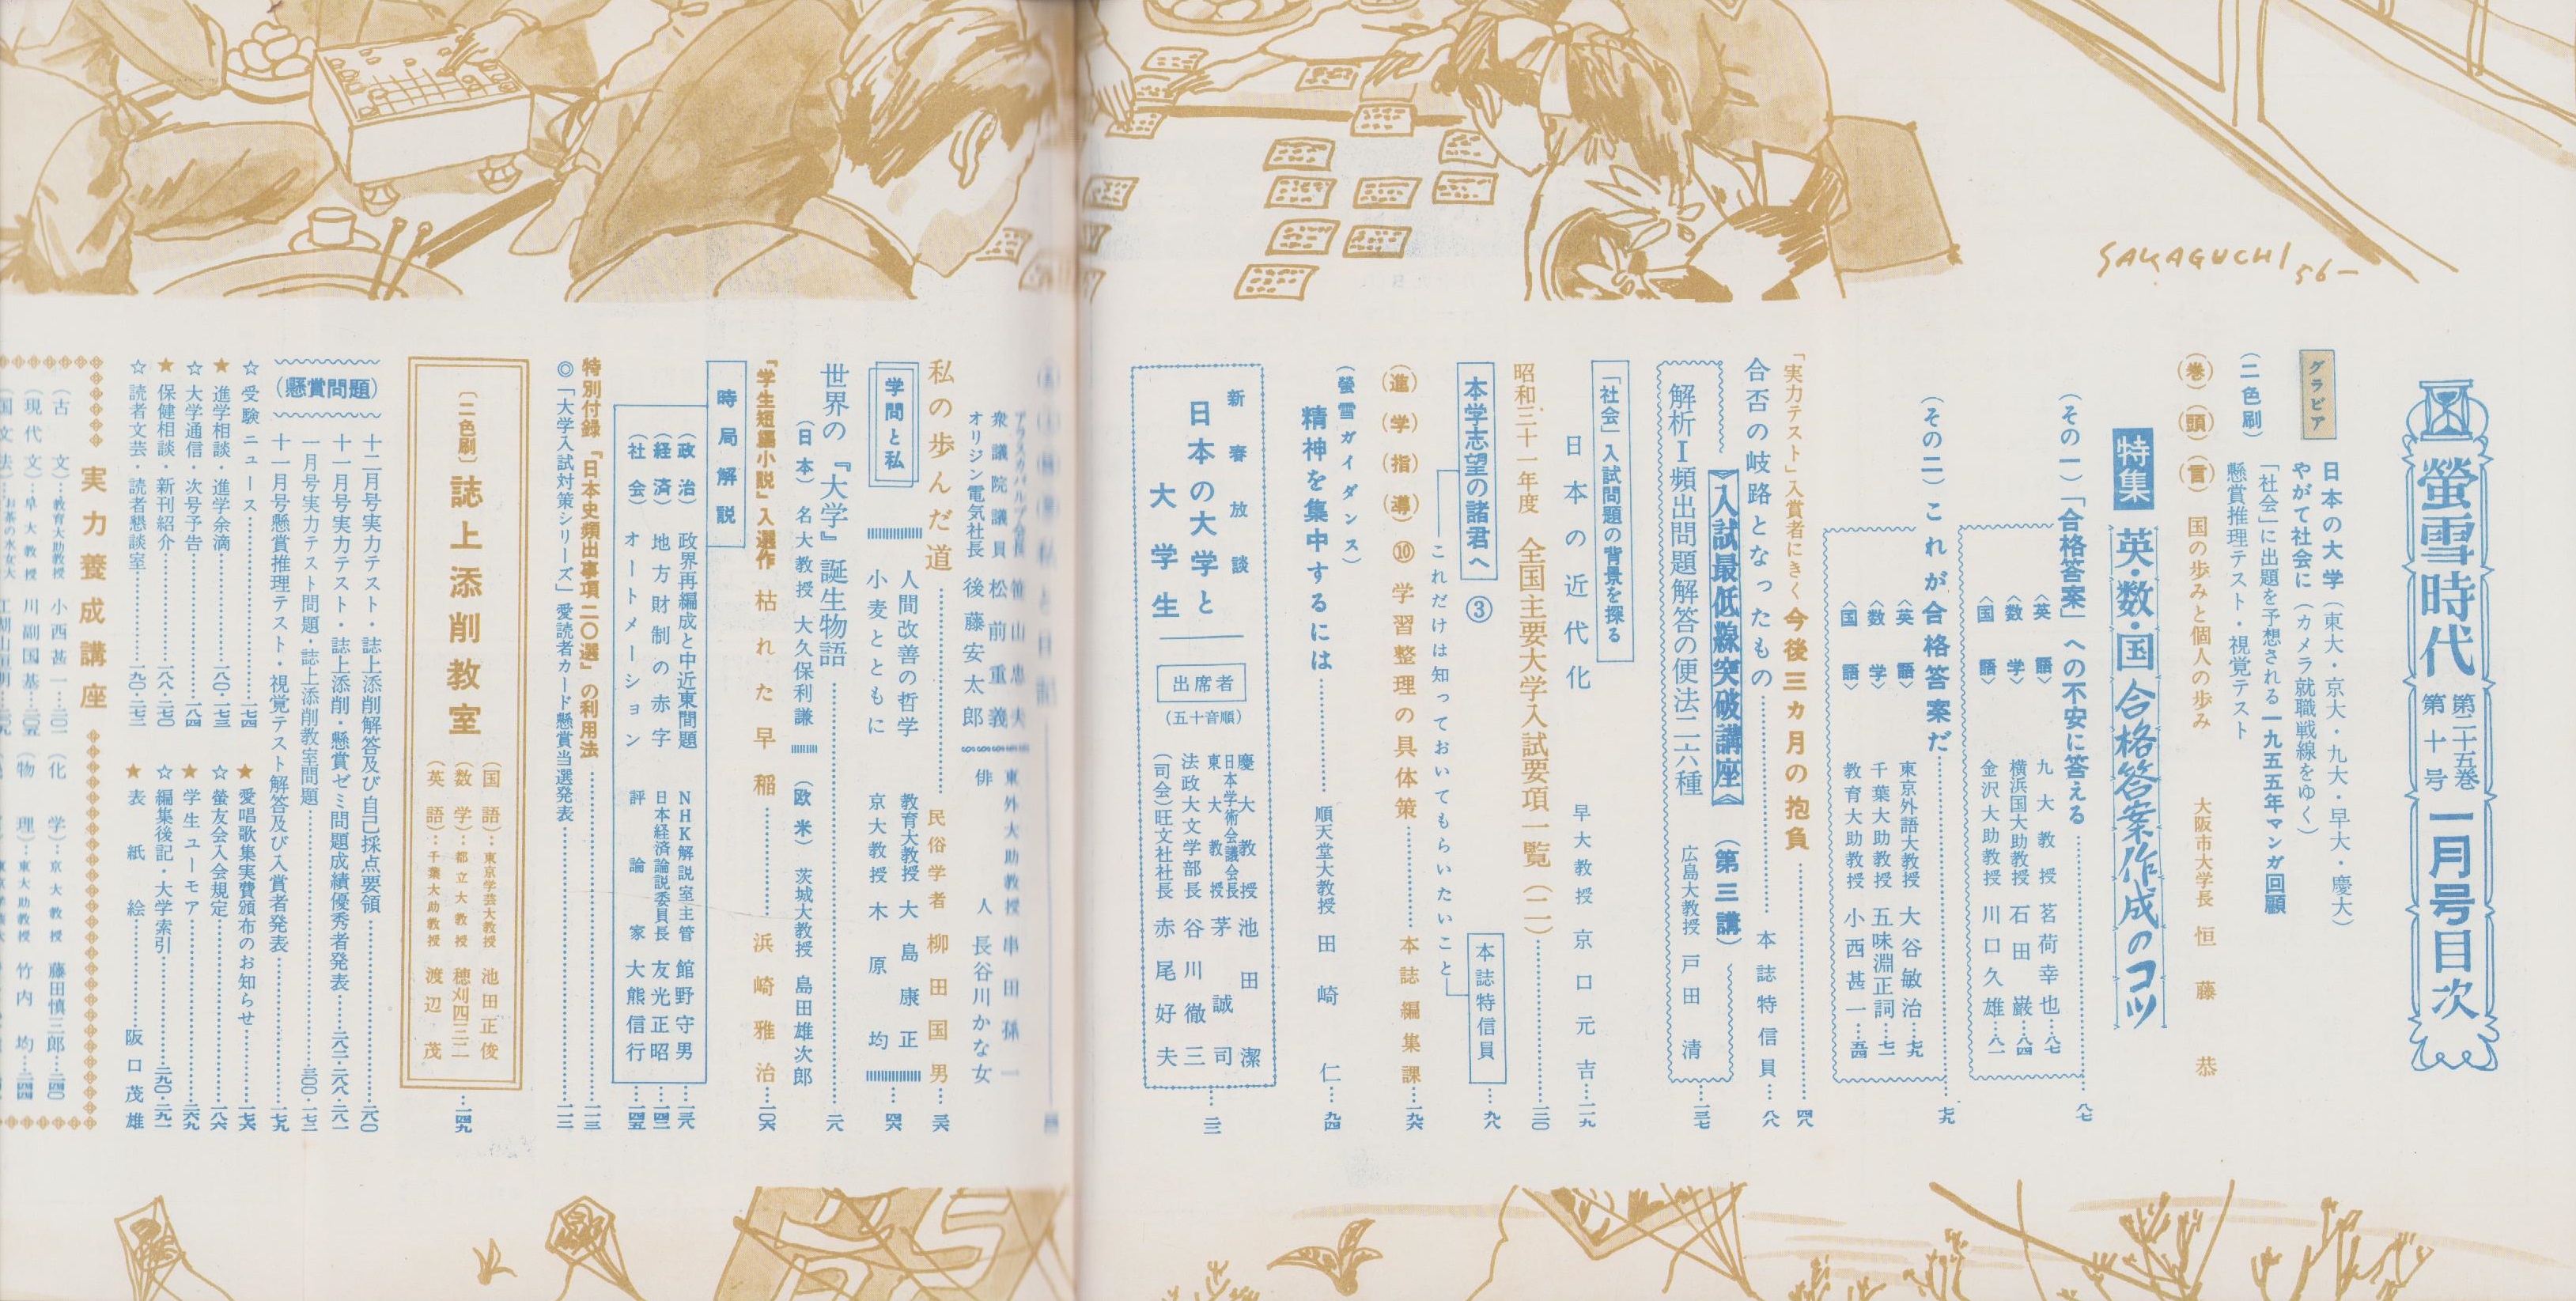 SAKAGUCHI 56-
螢雪時代 第二十五巻 第十号 一月号目次
グラビア
日本の大学（東大・京大・九大・早大・慶大）
やがて社会に（カメラ就職戦線をゆく）
（二色刷）
「社会」に出題を予想される一九五五年マンガ回顧
懸賞推理テスト・視覚テスト
（巻）（頭）（言） 国の歩みと個人の歩み 大阪市大学長 恒藤恭
特集 英・数・国 合格答案作成のコツ
（その一）「合格答案」への不安に答える……八七
〈英語〉 九大教授 茗荷幸也…八七
〈数学〉 横浜国大助教授 石田巌…八四
〈国語〉 金沢大助教授 川口久雄…八一
（その二）これが合格答案だ……七九
〈英語〉 東京外語大教授 大谷敏治…七九
〈数学〉 千葉大助教授 五味淵正詞…七二
〈国語〉 教育大助教授 小西甚一…
「実力テスト」入賞者にきく 今後三カ月の抱負……四八
合否の岐路となったもの……本誌特信員…八八
《入試最低線突破講座》（第三講）
解析Ⅰ頻出問題解答の便法二六種 広島大教授 戸田清……一三七
「社会」入試問題の背景を探る
日本の近代化 早大教授 京口元吉…一一九
昭和三十一年度 全国主要大学入試要項一覧（二）……
本学志望の諸君へ ③
これだけは知っておいてもらいたいこと 本誌特信員…九八
（進）（学）（指）（導）⑩ 学習整理の具体策……本誌編集課…一九六
（螢雪ガイダンス）
精神を集中するには……順天堂大教授 田崎仁…九四
新春放談
日本の大学と
大学生
出席者
（五十音順）
慶大教授 池田潔
日本学術会議会長 東大教授 茅誠司
法政大文学部長 谷川徹三
（司会）旺文社社長 赤尾好夫
衆議院議員 松前重義
オリジン電気社長 後藤安太郎
東外大助教授 串田孫一
俳人 長谷川かな女
私の歩んだ道……民俗学者 柳田国男…三六
学問と私
人間改善の哲学 教育大教授 大島康正
小麦とともに 京大教授 木原均
世界の『大学』誕生物語……二八
（日本）名大教授 大久保利謙
（欧米）茨城大教授 島田雄次郎
「学生短編小説」入選作 枯れた早稲……浜崎雅治…二〇六
時局解説
（政治）政界再編成と中近東問題 NHK解説室主管 館野守男…一三八
（経済）地方財制の赤字 日本経済論説委員長 友光正昭…一四二
（社会）オートメーション 評論家 大熊信行…一四五
特別付録『日本史頻出事項二〇選』の利用法……一一三
◎「大学入試対策シリーズ」愛読者カード懸賞当選発表……一一二
〔二色刷〕誌上添削教室
（国語）…東京学芸大教授 池田正俊
（数学）…都立大教授 穂刈四三二
（英語）…千葉大助教授 渡辺茂
…一四九
（懸賞問題）
十二月号実力テスト・誌上添削解答及び自己採点要領……一八〇
十一月号実力テスト・誌上添削・懸賞ゼミ問題成績優秀者発表……二八二・二八八・二八一
一月号実力テスト問題・誌上添削教室問題……三〇〇・一七二
十一月号懸賞推理テスト・視覚テスト解答及び入賞者発表……一七九
☆受験ニュース……一七四
★進学相談・進学余滴……一八〇・一七三
☆大学通信・次号予告……一八四
★保健相談・新刊紹介……一八八・二七〇
☆読者文芸・読者懇談室……一九〇・二七二
★愛唱歌集実費頒布のお知らせ……一七六
☆螢友会入会規定……一八六
★学生ユーモア……二六九
☆編集後記・大学索引……二九〇・二九二
★表紙絵……阪口茂雄
実力養成講座
（古文）…教育大助教授 小西甚一…二〇二
（現代文）…早大教授 川副国基…
（化学）…京大教授 藤田慎三郎…二四〇
（物理）…東大助教授 竹内均…二四四